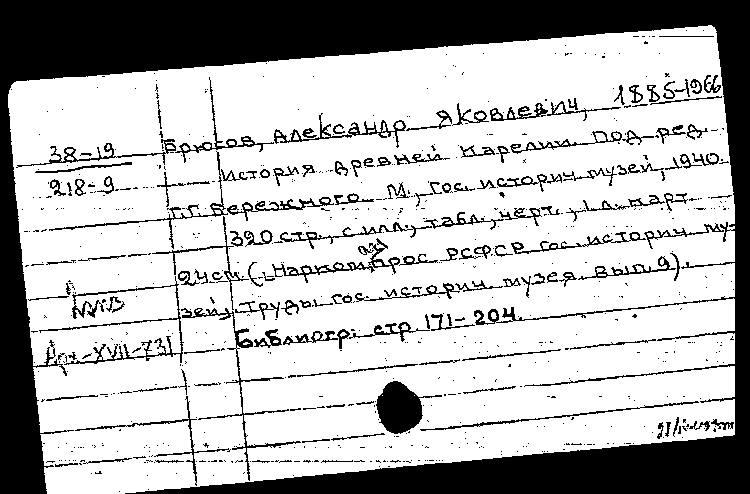 38-19
218-9
Брюсов, Александр Яковлевич, 1885-1966
История древней Карелии. Под ред.
Г.Г. Бережного. М., Гос. историч. музей, 1940.
320 стр., с илл., табл., черт., 1 л. карт.
24 см. (Наркомпрос РСФСР гос. историч. му-
зей. Труды гос. историч. музея. Вып. 9).
Библиогр: стр 171-204.
Арх-XVII-731